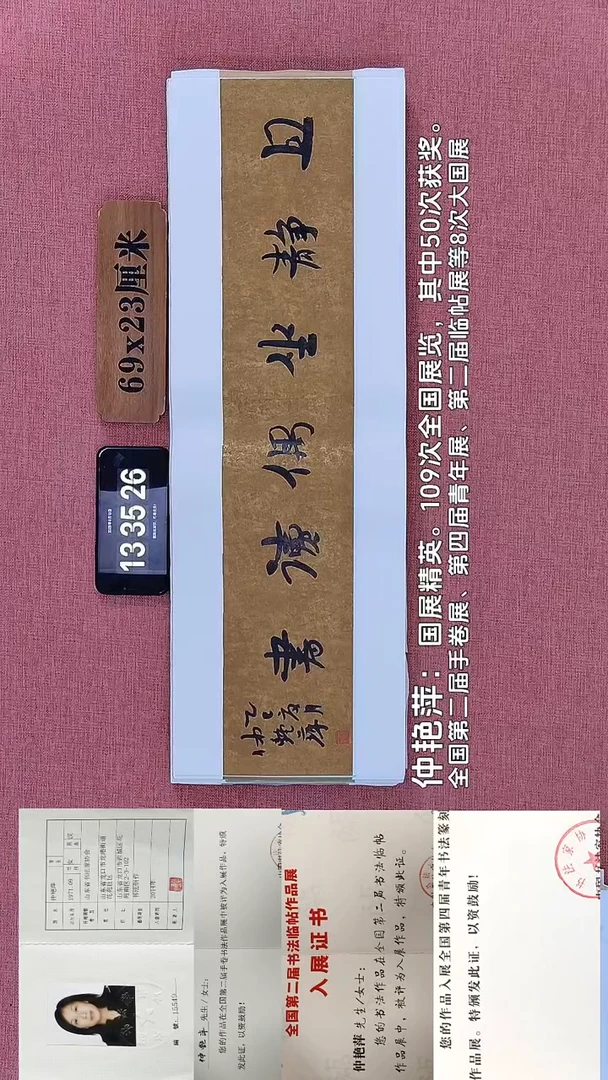 69x23厘米
13 35 26
且静坐偶读書
仲艳萍：国展精英。109次全国展览，其中50次获奖。
全国第二届手卷展、第四届青年展、第二届临帖展等8次大国展
1971.09
女
汉
山东省书法家协会
编号:15549
仲艳萍 先生/女士：
您的作品在全国第二届手卷书法作品展中被评为入展作品，特颁
发此证，以资鼓励！
全国第二届书法临帖作品展
入展证书
仲艳萍 先生/女士：
您的书法作品在全国第二届书法临帖
作品展中，被评为入展作品，特颁此证。
您的作品入展全国第四届青年书法篆刻
作品展。特颁发此证，以资鼓励！